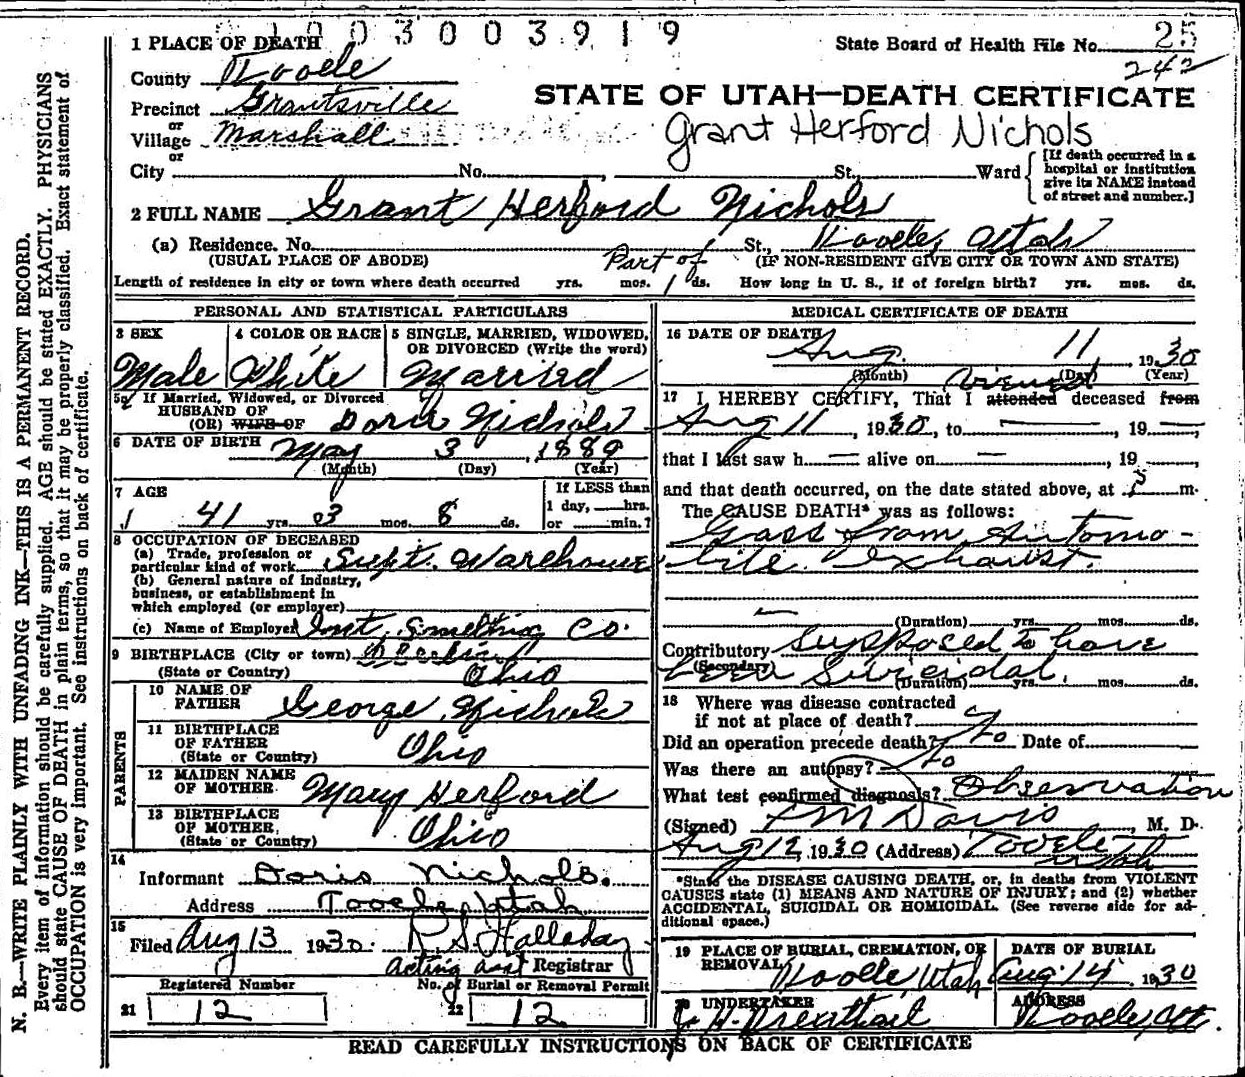 0 0 3 0 0 3 9 1 9
1 PLACE OF DEATH
State Board of Health File No. 25
242
County Tooele
Precinct Grantsville
or
Village Marshall
or
STATE OF UTAH—DEATH CERTIFICATE
Grant Herford Nichols
City No. St., Ward
[If death occurred in a hospital or institution give its NAME instead of street and number.]
2 FULL NAME Grant Herford Nichols
(a) Residence. No. St., Tooele, Utah
(USUAL PLACE OF ABODE) (IF NON-RESIDENT GIVE CITY OR TOWN AND STATE)
Part of
Length of residence in city or town where death occurred yrs. mos. 1 ds. How long in U. S., if of foreign birth? yrs. mos. ds.
PERSONAL AND STATISTICAL PARTICULARS
3 SEX 4 COLOR OR RACE 5 SINGLE, MARRIED, WIDOWED, OR DIVORCED (Write the word)
Male White Married
5a If Married, Widowed, or Divorced
HUSBAND OF
(OR) WIFE OF Doris Nichols
6 DATE OF BIRTH May 3, 1889
(Month) (Day) (Year)
7 AGE
41 yrs. 03 mos. 8 ds.
If LESS than 1 day, hrs. or min.?
8 OCCUPATION OF DECEASED
(a) Trade, profession or particular kind of work Supt. Warehouse
(b) General nature of industry, business, or establishment in which employed (or employer)
(c) Name of Employer Int. Smelting Co.
9 BIRTHPLACE (City or town)
(State or Country) Ohio
PARENTS
10 NAME OF FATHER George Nichols
11 BIRTHPLACE OF FATHER (State or Country) Ohio
12 MAIDEN NAME OF MOTHER Mary Herford
13 BIRTHPLACE OF MOTHER, (State or Country) Ohio
14
Informant Doris Nichols.
Address Tooele, Utah
15
Filed Aug 13 1930. R. S. Halladay
acting asst Registrar
Registered Number No. of Burial or Removal Permit
21 12 22 12
MEDICAL CERTIFICATE OF DEATH
16 DATE OF DEATH
Aug. 11, 1930
(Month) (Day) (Year)
viewed
17 I HEREBY CERTIFY, That I attended deceased from
Aug 11, 1930, to — , 19 —,
that I last saw h — alive on — , 19 ,
and that death occurred, on the date stated above, at m.
The CAUSE DEATH* was as follows:
Gass from Automo-
bile Exhaust.
(Duration) yrs. mos. ds.
Contributory Supposed to have
(Secondary) been Suicidal.
(Duration) yrs. mos. ds.
18 Where was disease contracted
if not at place of death?
Did an operation precede death? No Date of
Was there an autopsy? No
What test confirmed diagnosis? Observation
(Signed) M Davis, M. D.
Aug 12, 1930 (Address) Tooele
Utah
*State the DISEASE CAUSING DEATH, or, in deaths from VIOLENT
CAUSES state (1) MEANS AND NATURE OF INJURY; and (2) whether
ACCIDENTAL, SUICIDAL OR HOMICIDAL. (See reverse side for ad-
ditional space.)
19 PLACE OF BURIAL, CREMATION, OR REMOVAL DATE OF BURIAL
Tooele, Utah Aug. 14 1930
20 UNDERTAKER ADDRESS
Tooele, Ut.
READ CAREFULLY INSTRUCTIONS ON BACK OF CERTIFICATE
N. B.—WRITE PLAINLY WITH UNFADING INK—THIS IS A PERMANENT RECORD.
Every item of information should be carefully supplied. AGE should be stated EXACTLY. PHYSICIANS
should state CAUSE OF DEATH in plain terms, so that it may be properly classified. Exact statement of
OCCUPATION is very important. See instructions on back of certificate.